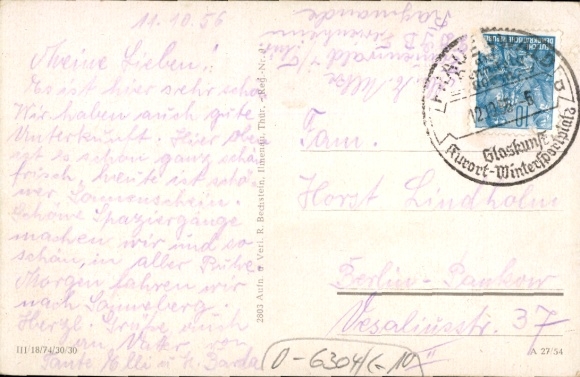 11.10.56
Meine Lieben!
Es ist hier sehr schön
Wir haben auch gute
Unterkunft. Hier oben
ist es schon ganz schön
frisch, heute ist schö-
ner Sonnenschein.
Schöne Spaziergänge
machen wir und so
schön, in aller Ruhe.
Morgen fahren wir
nach Sonneberg.
Herzl. Grüße auch
an Vater von
Tante Elli u.
III/18/74/30/30
2803 Aufn. u. Verl. R. Bechstein, Ilmenau, Thür. - Reg.-Nr.
DEUTSCHE
DEMOKRATISCHE REPUBLIK
12.10.56
Glaskunst
Kurort-Wintersportplatz
Fam.
Horst Lindholm
Berlin-Pankow
Vesaliusstr. 37
II
0-6304/6-10
A 27/54